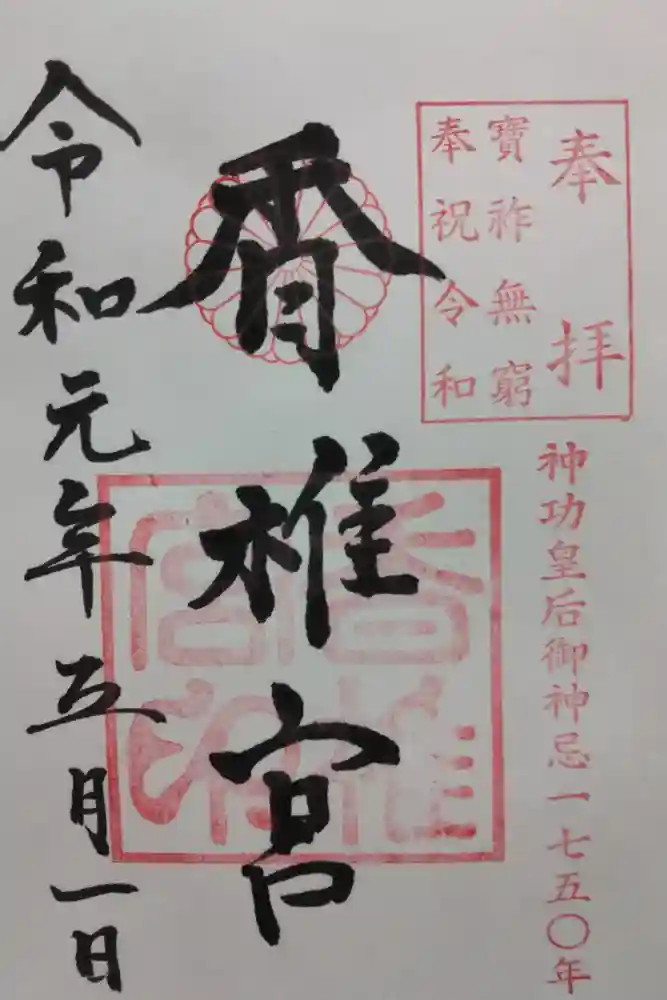 奉拝
寶祚無窮
奉祝令和
神功皇后御神忌一七五〇年
香椎宮
香椎宮印
令和元年五月一日